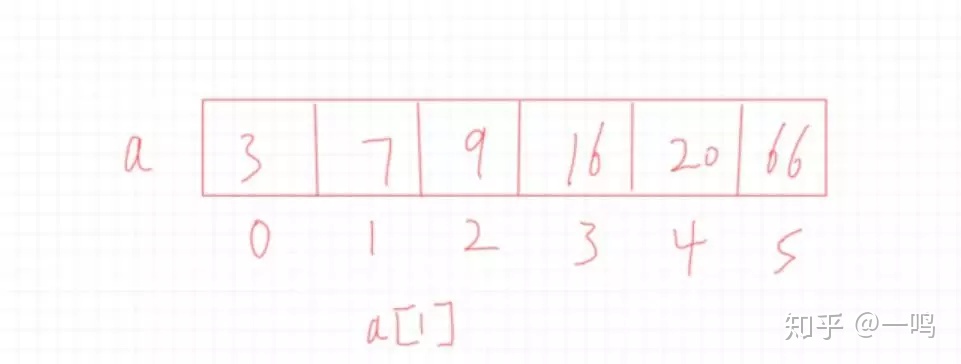 a 3 7 9 16 20 66
0 1 2 3 4 5
a[1]
知乎 @一鸣